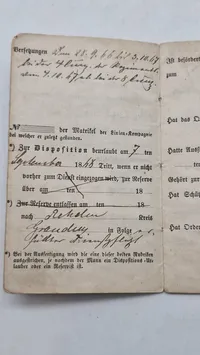 Versetzungen Vom 28.9.66 bis 3.10.67
bei der 4 Komp. des Regiments
vom 4.10.67 ab bei der 8 Komp.
No der Matrikel der Divisions-Kompagnie
bei welcher er zuletzt gestanden.
*) Zur Disposition beurlaubt am 7 ten
September 1868 Tritt, wenn er nicht
vorher zum Dienst eingezogen wird, zur Reserve
über am ten 18
*) Zur Reserve entlassen am ten 18
nach Kreis
Graudenz in Folge
Dienstpflicht
*) Bei der Ausfertigung wird die eine dieser beiden Rubriken
ausgestrichen, je nachdem der Mann ein Dispositions-Ur-
lauber oder ein Reservist ist.
zum
Hat das
Hatte
Gehört zur
Hat
Hat Orden